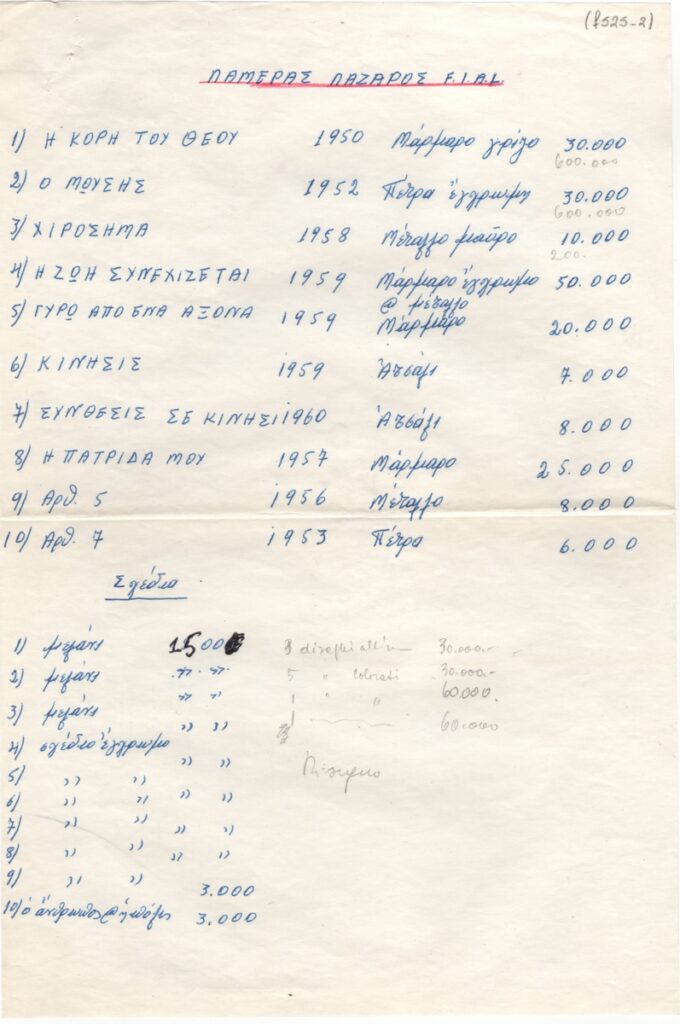 (f525-2)
ΛΑΜΕΡΑΣ ΛΑΖΑΡΟΣ F.I.A.L.
1) Η ΚΟΡΗ ΤΟΥ ΘΕΟΥ 1950 Μάρμαρο γρίζο 30.000
600.000
2) Ο ΜΩΥΣΗΣ 1952 Πέτρα ἔγχρωμη 30.000
600.000
3) ΧΙΡΟΣΗΜΑ 1958 Μέταλλο μαῦρο 10.000
200.
4) Η ΖΩΗ ΣΥΝΕΧΙΖΕΤΑΙ 1959 Μάρμαρο ἔγχρωμο 50.000
@ μέταλλο
5) ΓΥΡΩ ΑΠΟ ΕΝΑ ΑΞΟΝΑ 1959 Μάρμαρο 20.000
6) ΚΙΝΗΣΙΣ 1959 Ἀτσάλι 7.000
7) ΣΥΝΘΕΣΙΣ ΣΕ ΚΙΝΗΣΙ 1960 Ἀτσάλι 8.000
8) Η ΠΑΤΡΙΔΑ ΜΟΥ 1957 Μάρμαρο 25.000
9) Αρθ. 5 1956 Μέταλλο 8.000
10) Αρθ. 7 1953 Πέτρα 6.000
Σχέδια
1) μελάνι 1500 disegni 30.000.-
2) μελάνι " " 5 " Colorati 30.000.-
3) μελάνι " " 1 " " 60.000.
4) σχέδιο ἔγχρωμο " " 60.000
5) " " " "
6) " " " "
7) " " " "
8) " " " "
9) " " 3.000
10) ὁ ἄνθρωπος @ ἡ πόλις 3.000